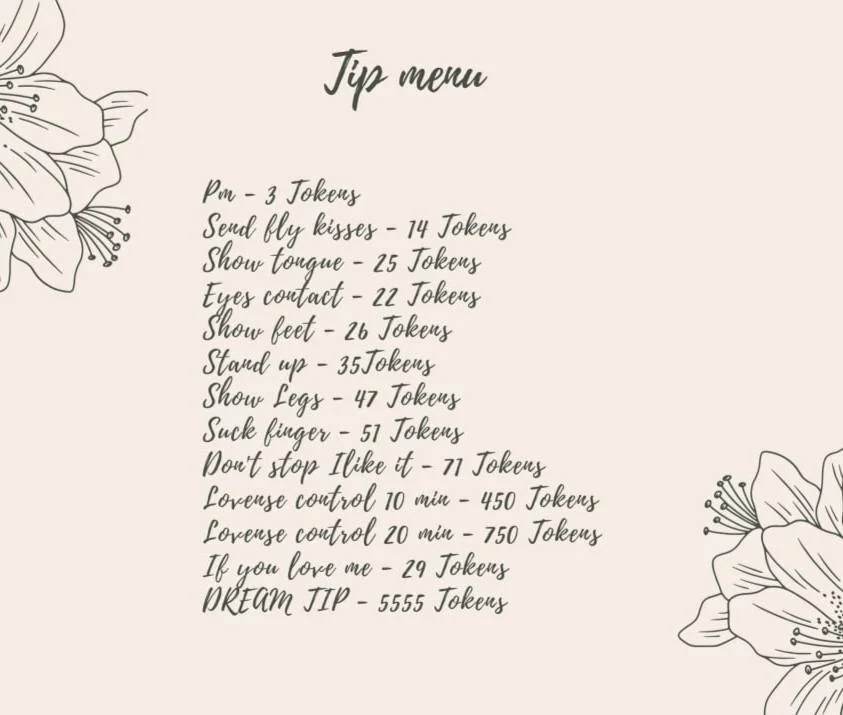 Tip menu
Pm - 3 Tokens
Send fly kisses - 14 Tokens
Show tongue - 25 Tokens
Eyes contact - 22 Tokens
Show feet - 26 Tokens
Stand up - 35Tokens
Show Legs - 47 Tokens
Suck finger - 51 Tokens
Don't stop Ilike it - 71 Tokens
Lovense control 10 min - 450 Tokens
Lovense control 20 min - 750 Tokens
If you love me - 29 Tokens
DREAM TIP - 5555 Tokens